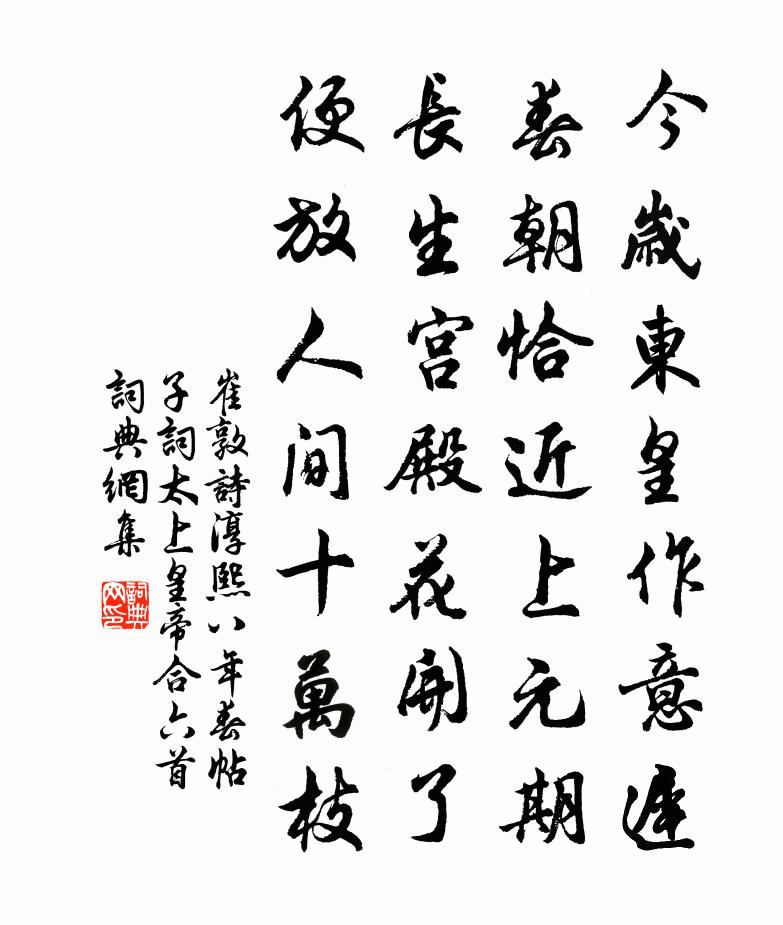 今歲東皇作意遲
春朝恰近上元期
長生宮殿花開了
便放人間十萬枝
崔敦詩淳熙八年春帖
子詞太上皇帝合六首
詞典網集
詞典
网印